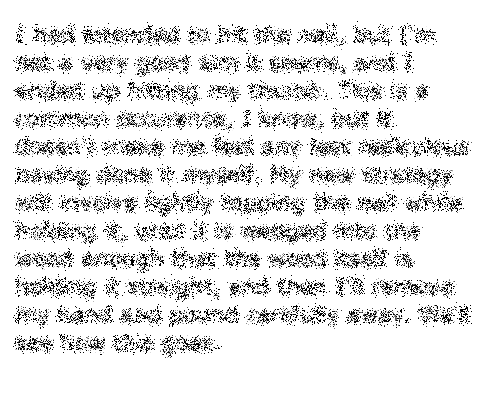 I had intended to hit the nail, but I'm
not a very good aim it seems, and I
ended up hitting my thumb. This is a
common occurence, I know, but it
doesn't make me feel any less ridiculous
having done it myself. My new strategy
will involve lightly tapping the nail while
holding it, until it is wedged into the
wood enough that the wood itself is
holding it straight, and then I'll remove
my hand and pound carefully away. We'll
see how this goes.